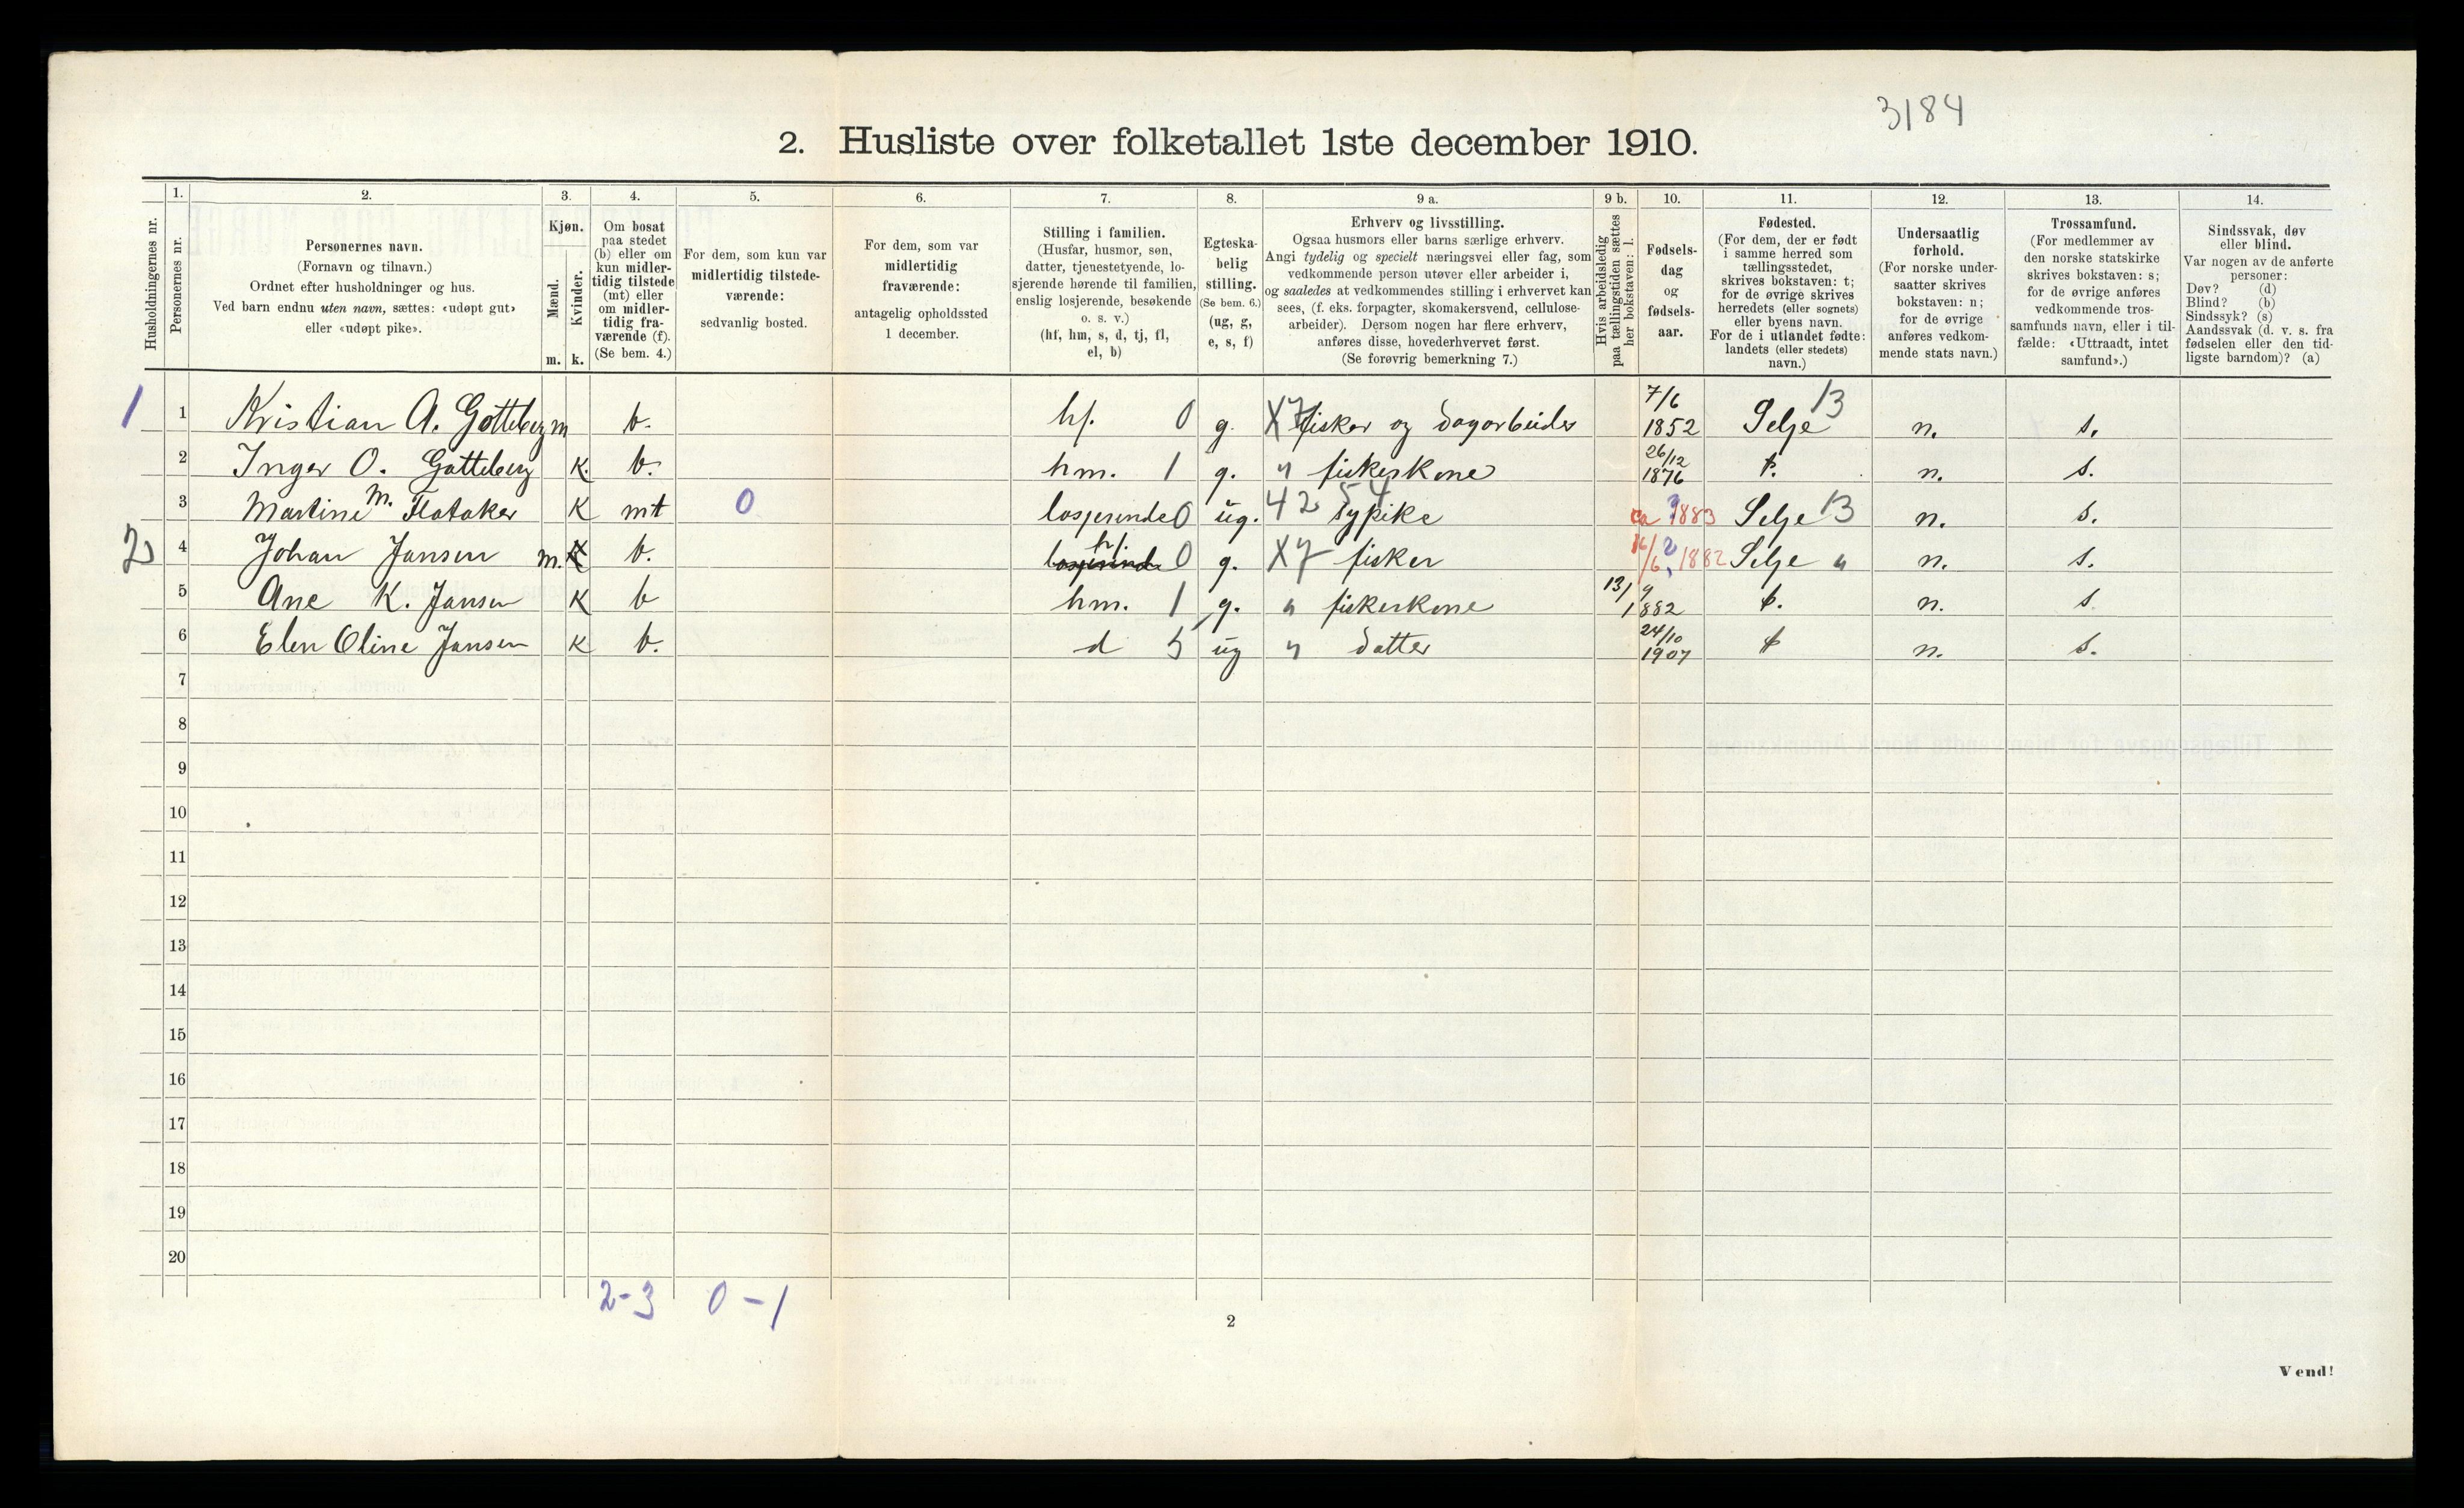 3184
2. Husliste over folketallet 1ste december 1910.
Husholdningernes nr.
1.
Personernes nr.
2.
Personernes navn.
(Fornavn og tilnavn.)
Ordnet efter husholdninger og hus.
Ved barn endnu uten navn, sættes: «udøpt gut»
eller «udøpt pike».
3.
Kjøn.
Mænd.
m.
Kvinder.
k.
4.
Om bosat
paa stedet
(b) eller om
kun midler-
tidig tilstede
(mt) eller
om midler-
tidig fra-
værende (f).
(Se bem. 4.)
5.
For dem, som kun var
midlertidig tilstede-
værende:
sedvanlig bosted.
6.
For dem, som var
midlertidig
fraværende:
antagelig opholdssted
1 december.
7.
Stilling i familien.
(Husfar, husmor, søn,
datter, tjenestetyende, lo-
sjerende hørende til familien,
enslig losjerende, besøkende
o. s. v.)
(hf, hm, s, d, tj, fl,
el, b)
8.
Egteska-
belig
stilling.
(Se bem. 6.)
(ug, g,
e, s, f)
9 a.
Erhverv og livsstilling.
Ogsaa husmors eller barns særlige erhverv.
Angi tydelig og specielt næringsvei eller fag, som
vedkommende person utøver eller arbeider i,
og saaledes at vedkommendes stilling i erhvervet kan
sees, (f. eks. forpagter, skomakersvend, cellulose-
arbeider). Dersom nogen har flere erhverv,
anføres disse, hovederhvervet først.
(Se forøvrig bemerkning 7.)
9 b.
Hvis arbeidsledig
paa tællingstiden sættes
her bokstaven: l.
10.
Fødsels-
dag
og
fødsels-
aar.
11.
Fødested.
(For dem, der er født
i samme herred som
tællingsstedet,
skrives bokstaven: t;
for de øvrige skrives
herredets (eller sognets)
eller byens navn.
For de i utlandet fødte:
landets (eller stedets)
navn.)
12.
Undersaatlig
forhold.
(For norske under-
saatter skrives
bokstaven: n;
for de øvrige
anføres vedkom-
mende stats navn.)
13.
Trossamfund.
(For medlemmer av
den norske statskirke
skrives bokstaven: s;
for de øvrige anføres
vedkommende tros-
samfunds navn, eller i til-
fælde: «Uttraadt, intet
samfund».)
14.
Sindssvak, døv
eller blind.
Var nogen av de anførte
personer:
Døv? (d)
Blind? (b)
Sindssyk? (s)
Aandssvak (d. v. s. fra
fødselen eller den tid-
ligste barndom)? (a)
1 1 Kristian A. Gotteberg m b. hf. 0 g. X7 fisker og dagarbeider 7/6 1852 Selje 13 n. s.
2 Inger O. Gotteberg K. b. hm. 1 g. " fiskerkone 26/12 1876 t. n. s.
3 Martine M. Flataker K mt 0 losjerende 0 ug. 42 54 sypike ca 1883 Selje 13 n. s.
2 4 Johan Jansen m. b. losjerende hf 0 g. X7 fisker 1882 Selje " n. s.
5 Ane K. Jansen K b hm. 1 g. " fiskerkone 13/9 1882 t. n. s
6 Elen Oline Jansen K b. d 5 ug " datter 24/10 1907 t n. s.
7
8
9
10
11
12
13
14
15
16
17
18
19
20
2-3 0-1
2
Vend!